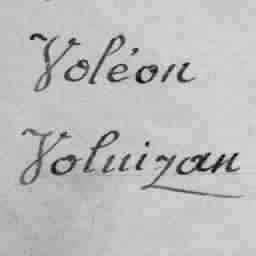 Voléon
Voluizan